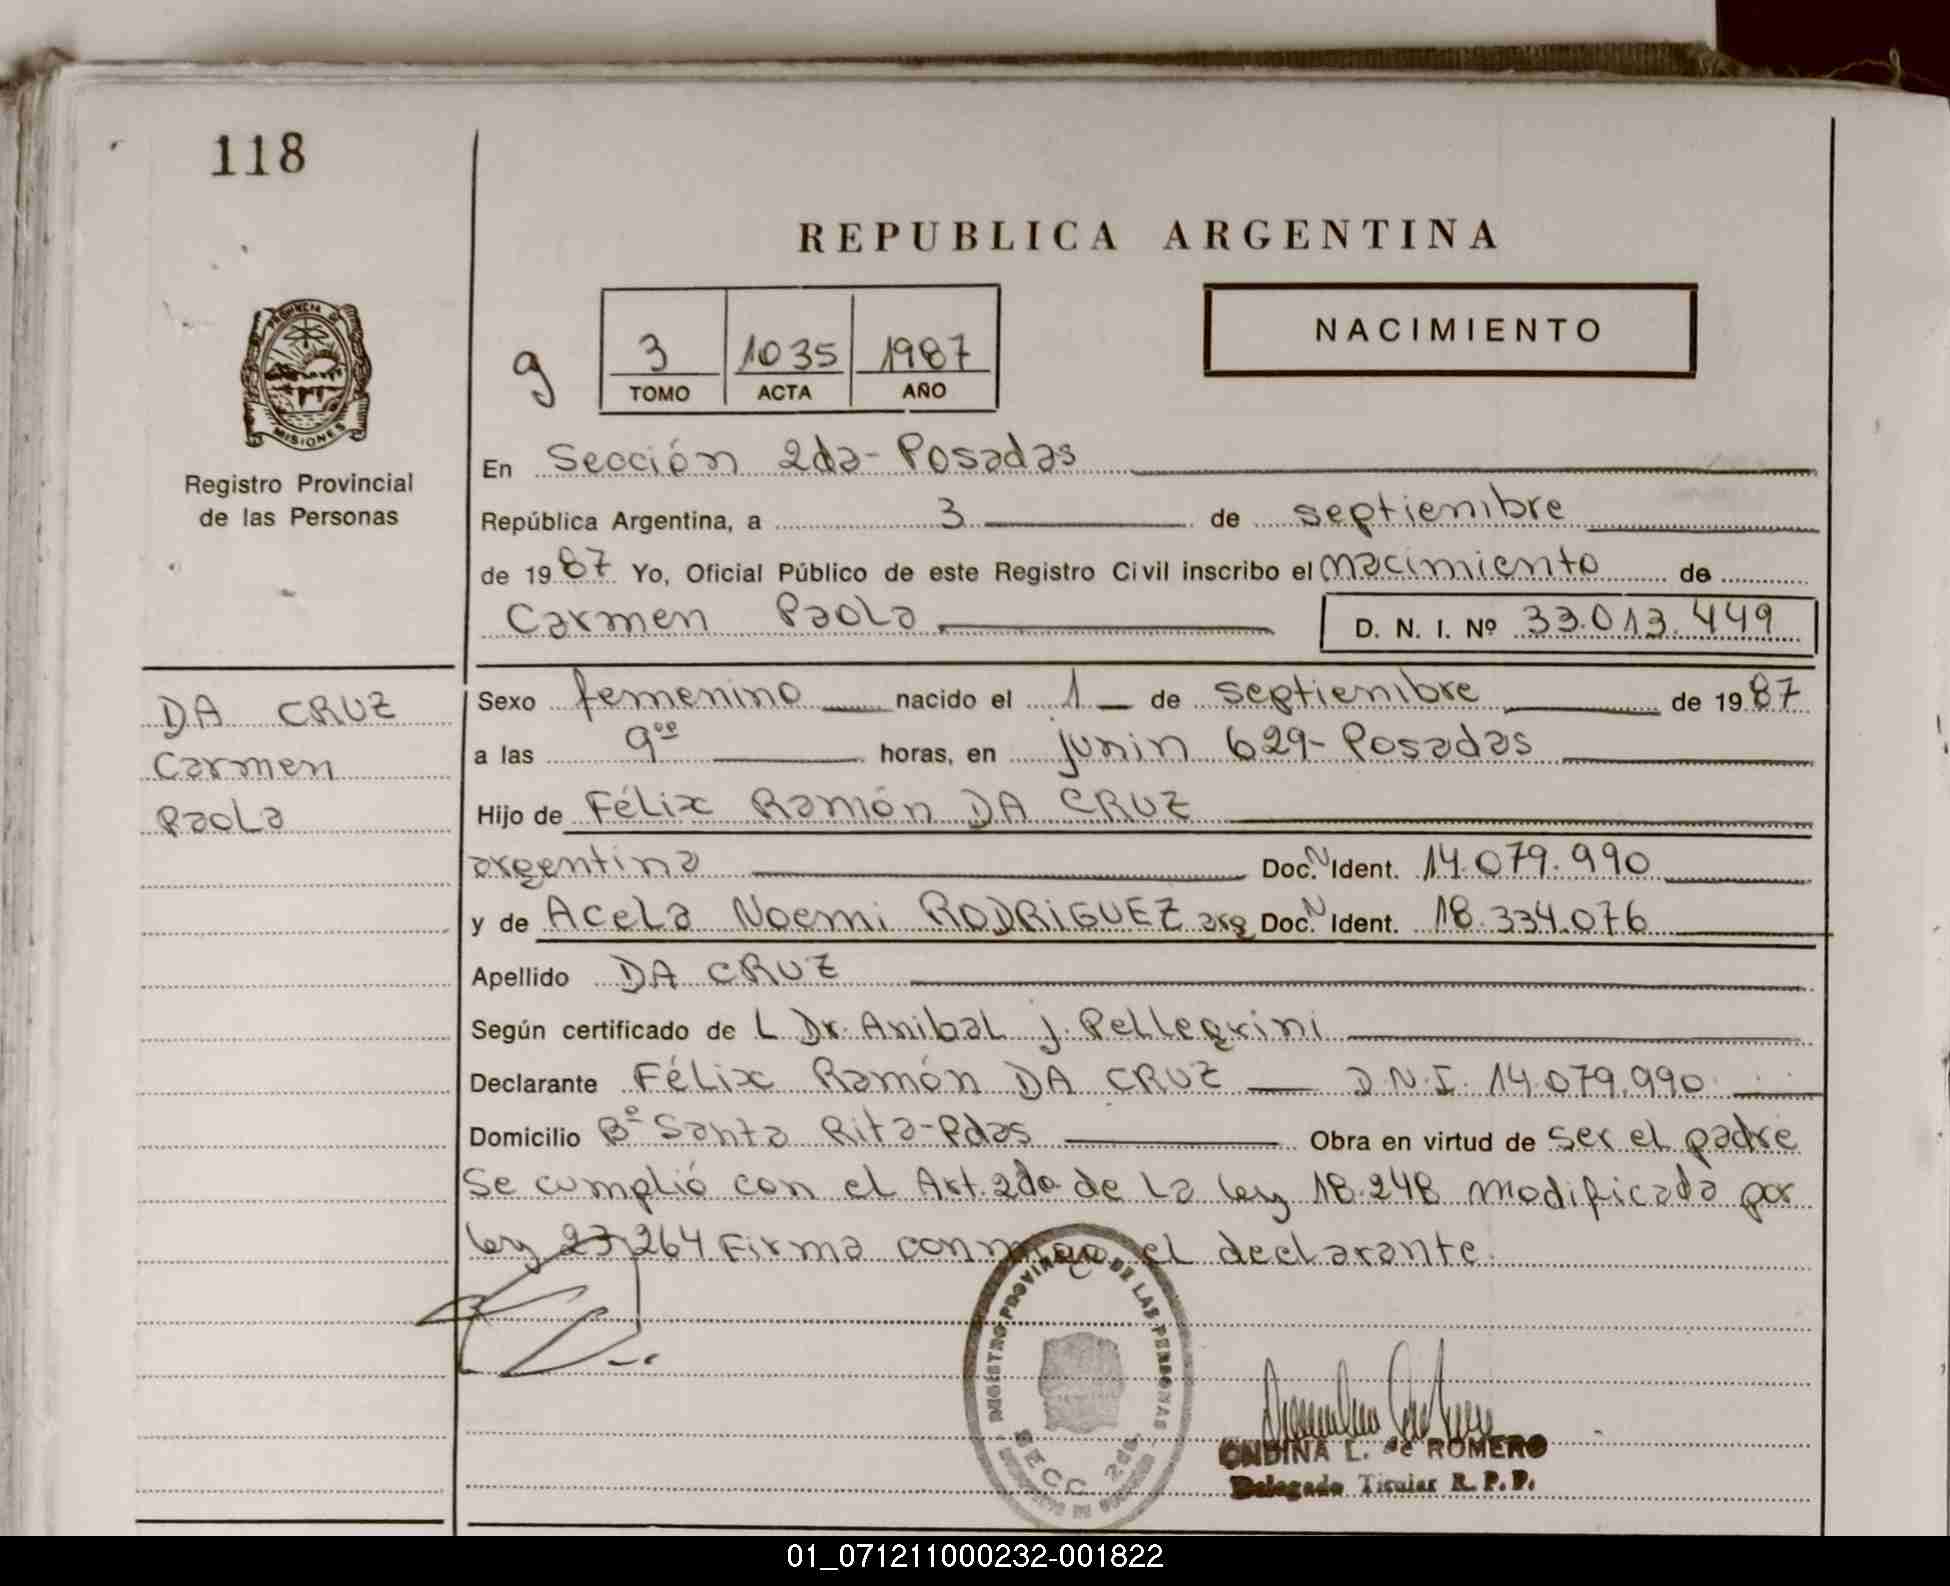 118
REPUBLICA ARGENTINA
PROVINCIA DE
MISIONES
Registro Provincial
de las Personas
g
3 1035 1987
TOMO ACTA AÑO
NACIMIENTO
En Sección 2da- Posadas
República Argentina, a 3 de septiembre
de 1987 Yo, Oficial Público de este Registro Civil inscribo el nacimiento de
Carmen Paola D. N. I. Nº 33.013.449
DA CRUZ
Carmen
Paola
Sexo femenino nacido el 1 de septiembre de 1987
a las 9ºº horas, en junin 629- Posadas
Hijo de Félix Ramón DA CRUZ
argentina Doc. N Ident. 14.079.990
y de Acela Noemi RODRiGUEZ arg Doc. N Ident. 18.334.076
Apellido DA CRUZ
Según certificado de L Dr. Anibal J. Pellegrini
Declarante Félix Ramón DA CRUZ D.N.I. 14.079.990
Domicilio Bº Santa Rita-Pdas Obra en virtud de ser el padre
Se cumplió con el Art. 2do de La ley 18.248 modificada por
ley 23.264 Firma conmigo el declarante.
REGISTRO PROVINCIAL DE LAS PERSONAS
SECC 2da.
ONDINA L. de ROMERO
Delegada Titular R. P. P.
01_071211000232-001822